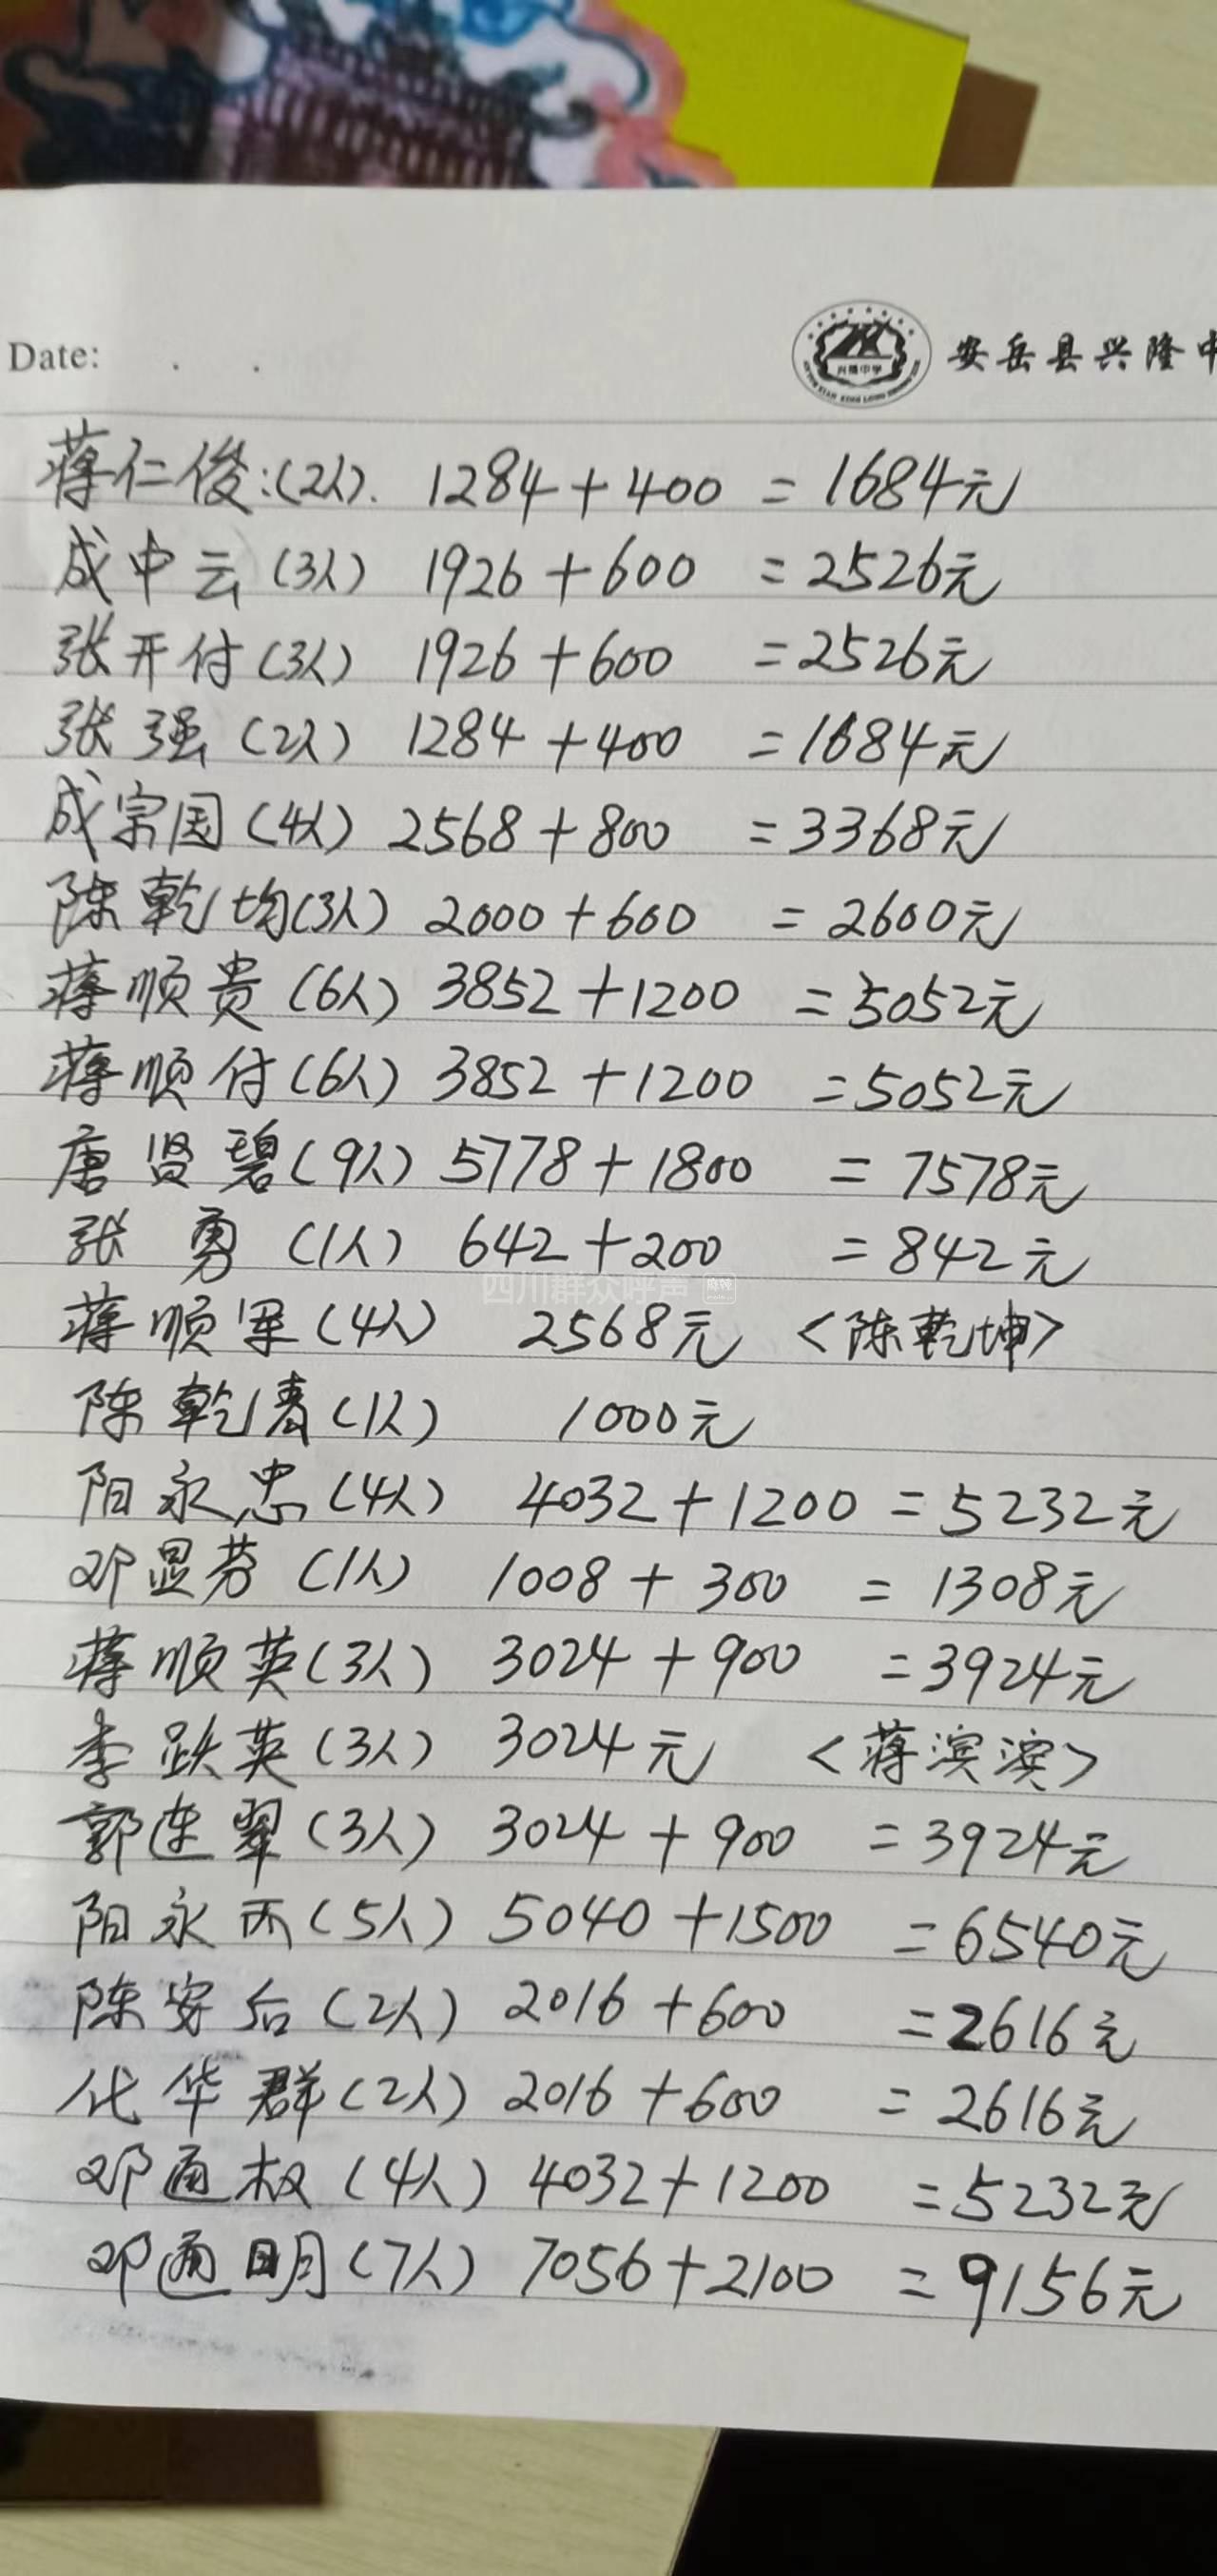 Date: . .
兴隆中学
安岳县兴隆中
蒋仁俊:(2人). 1284+400 = 1684元
成中云(3人) 1926+600 =2526元
张开付(3人) 1926+600 =2526元
张强(2人) 1284+400 =1684元
成宗国(4人) 2568+800 =3368元
陈乾均(3人) 2000+600 =2600元
蒋顺贵(6人) 3852+1200 =5052元
蒋顺付(6人) 3852+1200 =5052元
唐贤碧(9人) 5778+1800 =7578元
张勇(1人) 642+200 =842元
四川群众呼声
蒋顺军(4人) 2568元 <陈乾坤>
陈乾(1人) 1000元
阳永忠(4人) 4032+1200=5232元
邓显芬(1人) 1008+300 =1308元
蒋顺英(3人) 3024+900 =3924元
李跃英(3人) 3024元 <蒋滨滨>
郭连翠(3人) 3024+900 =3924元
阳永丙(5人) 5040+1500 =6540元
陈安后(2人) 2016+600 =2616元
化华群(2人) 2016+600 =2616元
邓通权(4人) 4032+1200 =5232元
邓通明(7人) 7056+2100 =9156元